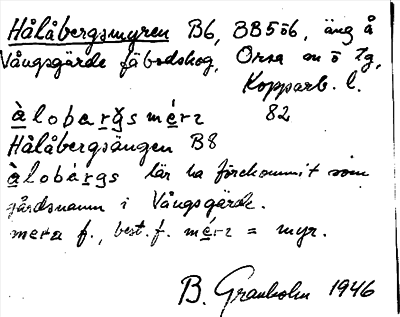 Hålåbergsmyren B6, BB5ö6, äng å
Vångsgärde fäbodskog, Orsa sn ö tg,
Kopparb. l.
àlobarǧs mérz 82
Hålåbergsängen B8
àlobárgs lär ha förekommit som
gårdsnamn i Vångsgärde.
mera f., best. f. mérz = myr.
B. Granholm 1946